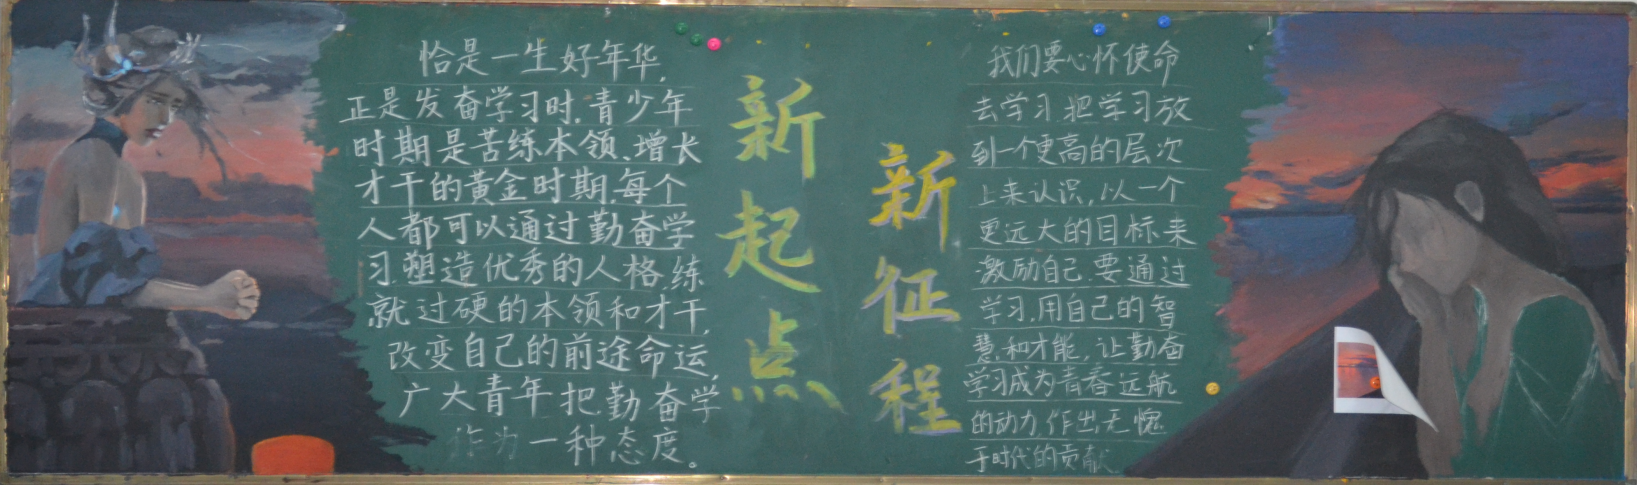 恰是一生好年华,
正是发奋学习时.青少年
时期是苦练本领、增长
才干的黄金时期.每个
人都可以通过勤奋学
习.塑造优秀的人格,练
就过硬的本领和才干,
改变自己的前途命运,
广大青年把勤奋学
作为一种态度。
新起点
新征程
我们要心怀使命
去学习.把学习放
到一个更高的层次
上来认识,以一个
更远大的目标来
激励自己.要通过
学习.用自己的智
慧.和才能,让勤奋
学习成为青春远航
的动力.作出无愧
于时代的贡献